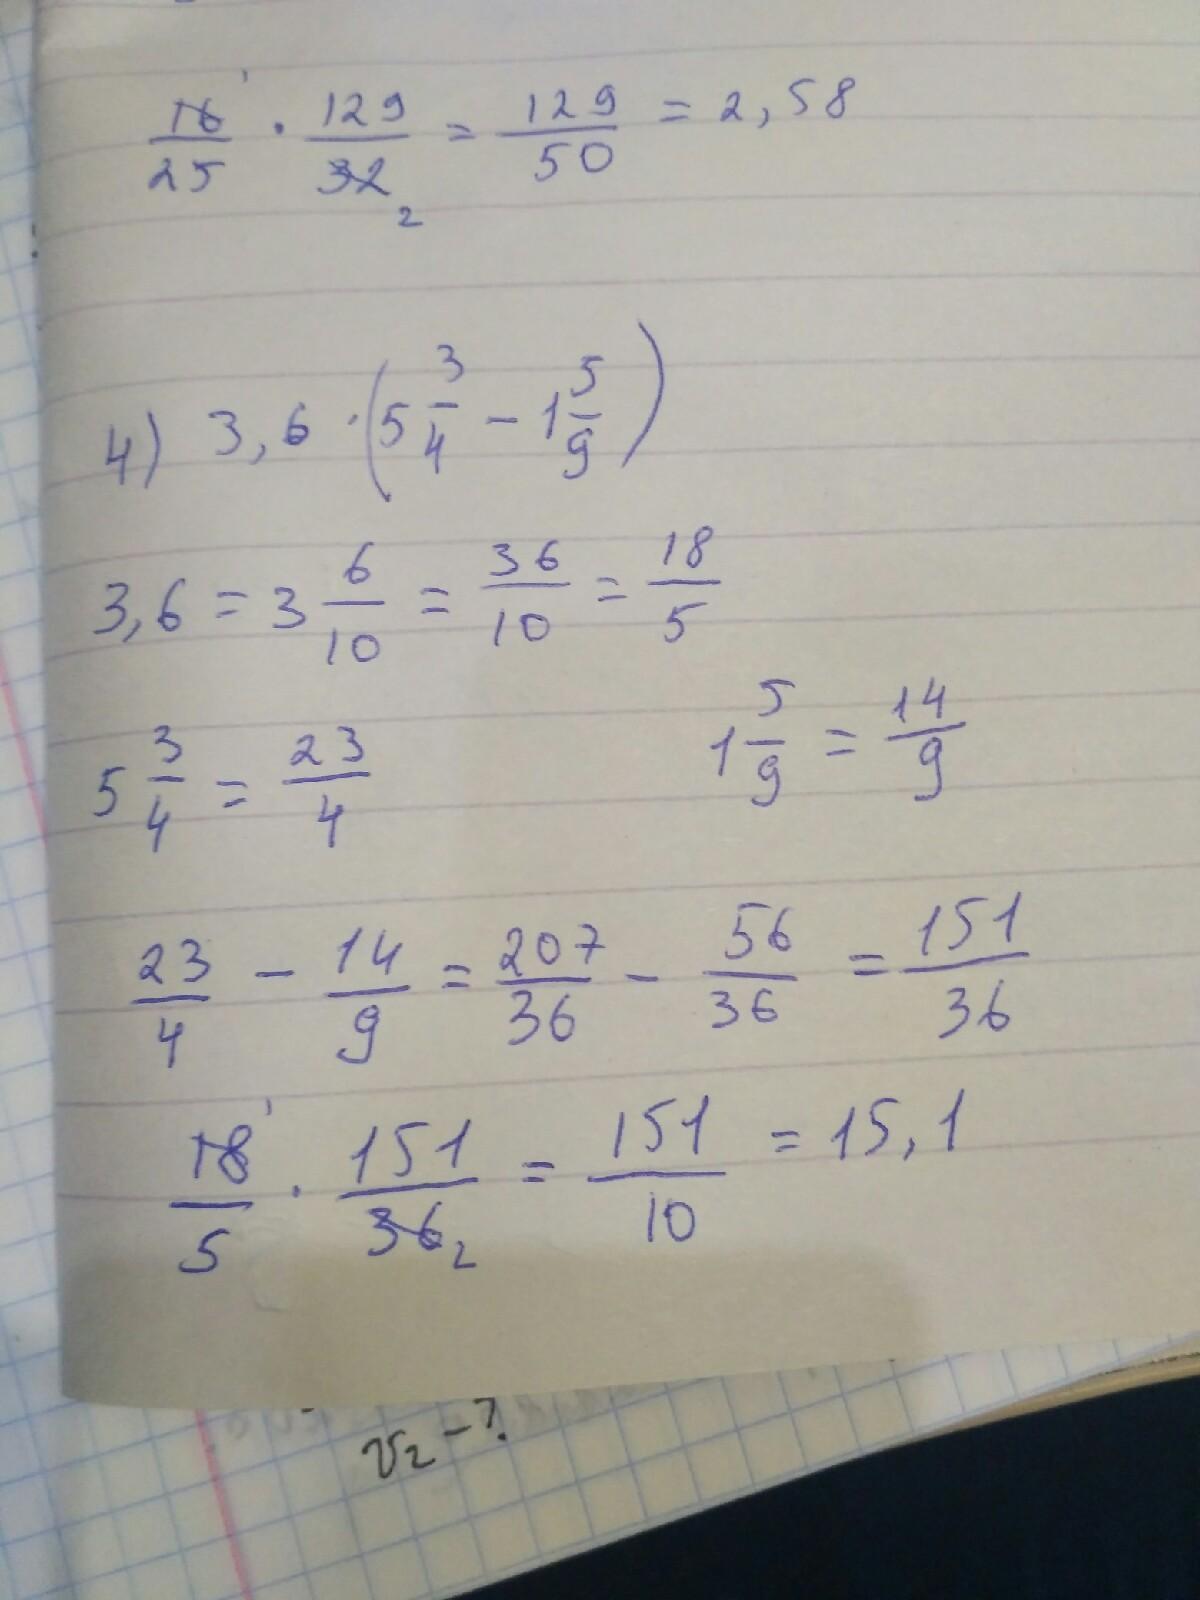 16/25 · 129/32 = 129/50 = 2,58
1 2
4) 3,6 · (5 3/4 - 1 5/9)
3,6 = 3 6/10 = 36/10 = 18/5
5 3/4 = 23/4 1 5/9 = 14/9
23/4 - 14/9 = 207/36 - 56/36 = 151/36
18/5 · 151/36 = 151/10 = 15,1
1 2
v2 - ?